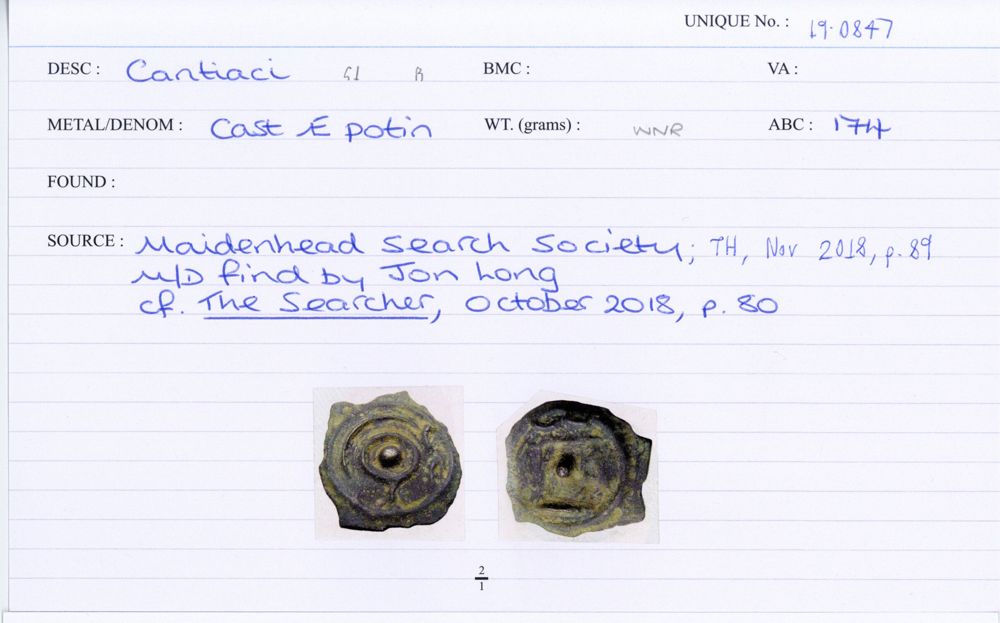 UNIQUE No. : 19.0847
DESC : Cantiaci G1 B BMC : VA :
METAL/DENOM : Cast Æ potin WT. (grams) : WNR ABC : 174
FOUND :
SOURCE : Maidenhead Search Society; TH, Nov 2018, p. 89
M/D find by Jon Long
cf. The Searcher, October 2018, p. 80
2
1